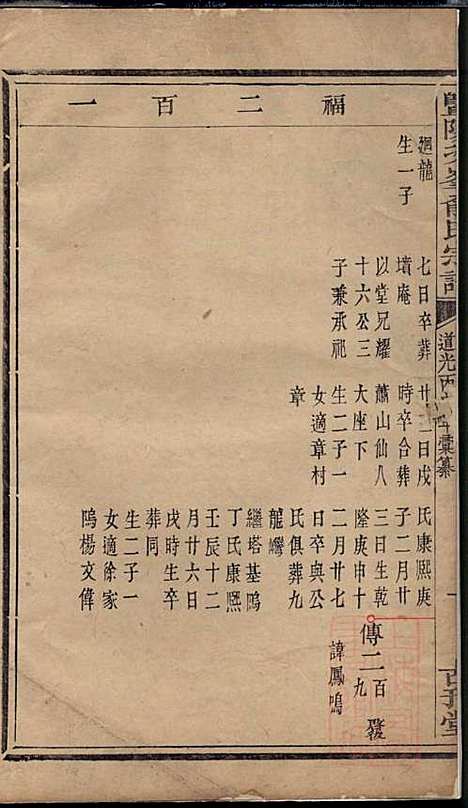 福二百一
廻龍
生一子
七日卒葬
墳庵
以堂兄耀
十六公三
子兼承祀
廿二日戌
時卒合葬
蕭山仙人
大座下
生二子一
女適章村
章
氏康熙庚
子二月廿
三日生乾
隆庚申十
二月廿七
日卒與公
氏俱葬九
龍灣
繼塔基隖
丁氏康熙
壬辰十二
月廿六日
戌時生卒
葬同
生二子一
女適徐家
隖楊文偉
傳二百
九
發
諱鳳鳴
道光丙
彙纂